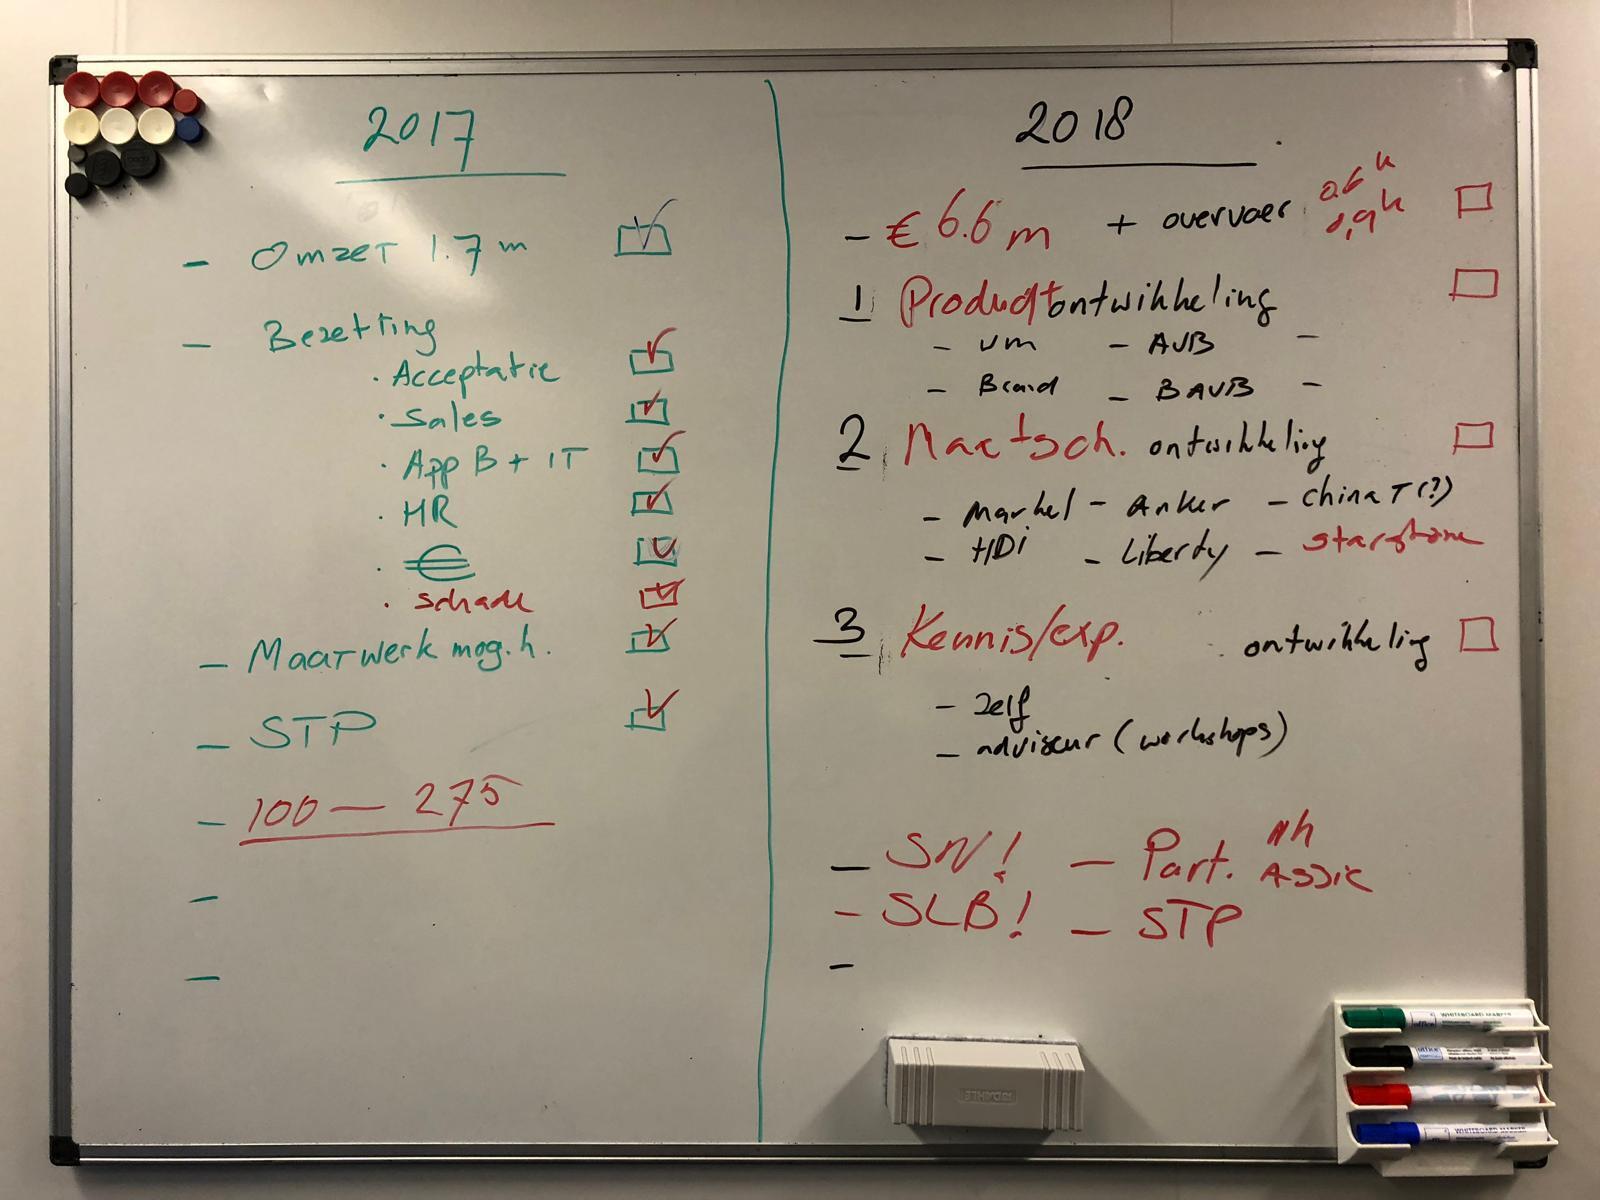 2017
- Omzet 1.7 m
- Bezetting
· Acceptatie
· Sales
· App B + IT
· HR
· €
· schade
- Maatwerk mog.h.
- STP
- 100 — 275
-
-
2018
- € 6.6 m + overvoer
1 Productontwikkeling
- vm - AVB -
- Brand - BAVB -
2 Maatsch. ontwikkeling
- Markel - Anker - China T (?)
- HDi - Liberty - starstone
3 Kennis/exp. ontwikkeling
- zelf
- adviseur (workshops)
- SN! - Part. Nh
Assie
- SLB! - STP
-
DAHLE
WHITEBOARD MARKER
office
WHITEBOARD MARKER